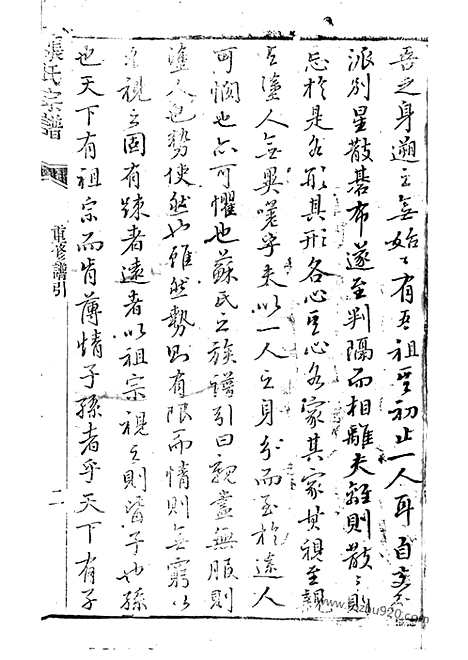 吾之身遡之無始始有吾祖其初止一人耳自支分
派別星散碁布遂至判隔而相離夫離則散散則
忘於是各形其形各心其心各家其家其視至親
與塗人無異嗟乎夫以一人之身分而至於塗人
可憫也亦可懼也蘇氏之族譜引曰親盡無服則
塗人也勢使然也雖然勢則有限而情則無窮以
視之固有疎者遠者以祖宗視之則皆子也孫
也天下有祖宗而肯薄情子孫者乎天下有子
張氏宗譜
重修譜引
二